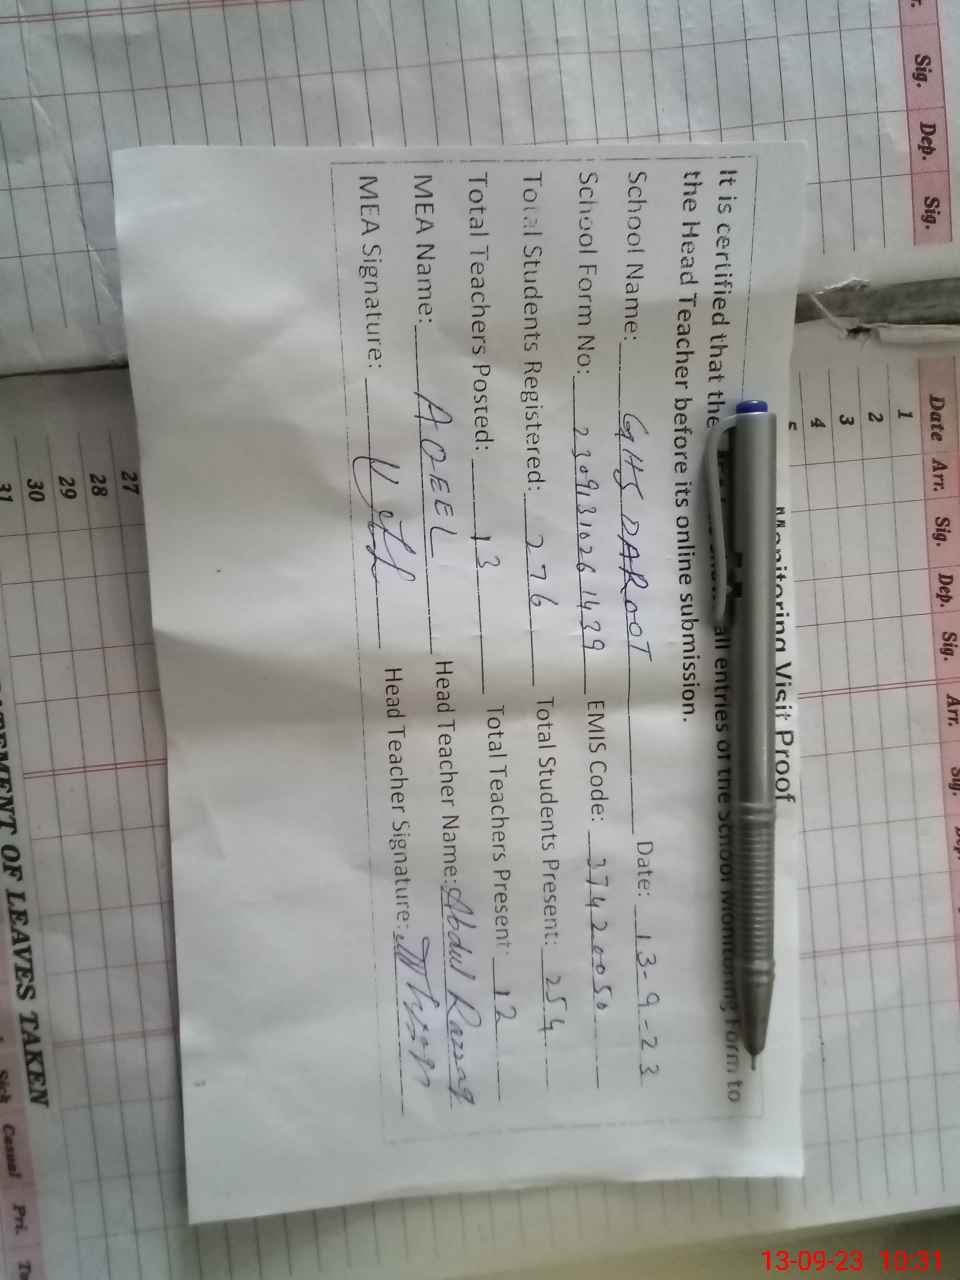 Monitoring Visit Proof
It is certified that the all entries of the School Monitoring Form to
the Head Teacher before its online submission.
School Name: GHS DAROOT Date: 13-9-23
School Form No: 23091310261439 EMIS Code: 37420050
Total Students Registered: 276 Total Students Present: 254
Total Teachers Posted: 13 Total Teachers Present: 12
MEA Name: AQEEL Head Teacher Name: Abdul Razzaq
MEA Signature: Head Teacher Signature:
Sig. Dep. Sig.
Date Arr. Sig. Dep. Sig. Arr. Sig. Dep.
1
2
3
4
27
28
29
30
31
OF LEAVES TAKEN
Sick Casual Pri.
13-09-23 10:31